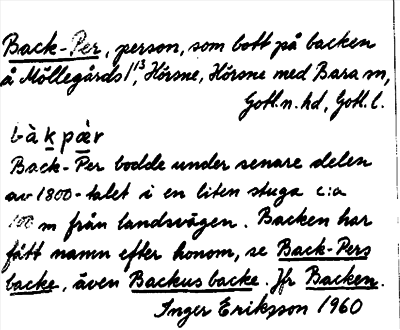 Back-Per, person, som bott på backen
å Möllegårds 1¹³, Hörsne, Hörsne med Bara sn,
Gotl. n. hd, Gotl. l.
bàkpær
Back-Per bodde under senare delen
av 1800-talet i en liten stuga c:a
100 m från landsvägen. Backen har
fått namn efter honom, se Back-Pers
backe, även Backus backe. Jfr Backen.
Inger Eriksson 1960